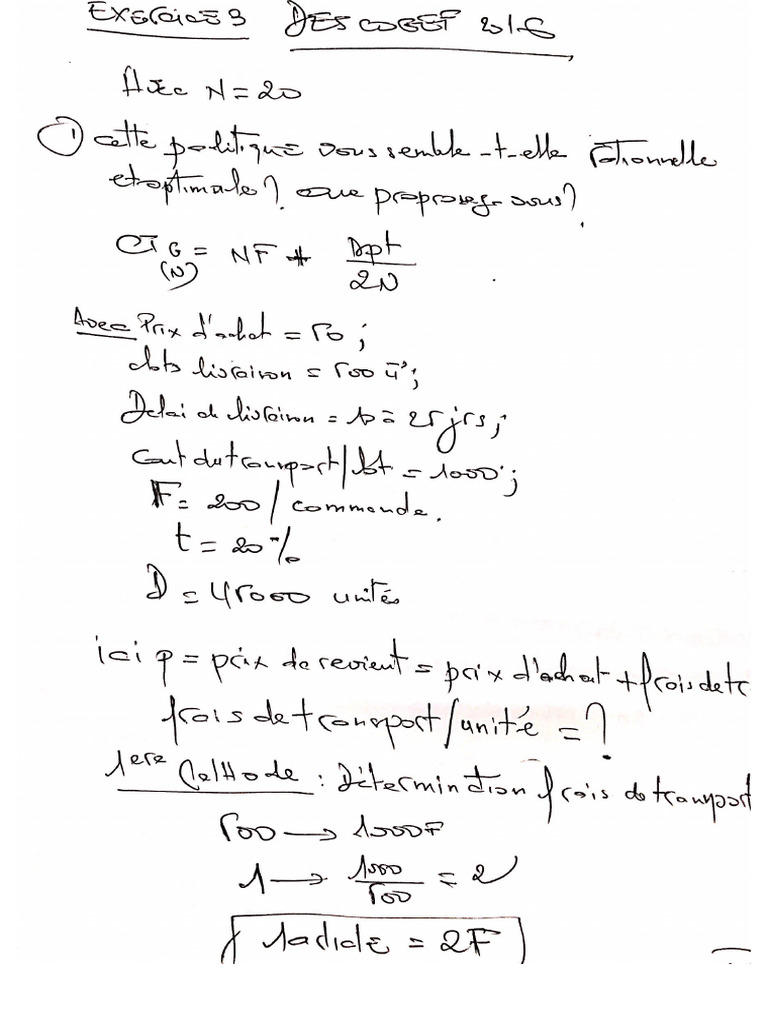 EXERCICE 3 DESCOGEF 2016
Avec N = 20
1) cette politique vous semble-t-elle rationnelle
et optimale ?. que proposez-vous ?
CTG (N) = NF + Dpt / 2N
Avec Prix d'achat = 50 ;
lots livraison = 500 u ;
Delai de livraison = 25 jrs ;
Cout du transport/lot = 1000 ;
F = 200 / commande.
t = 20%
D = 45000 unités
ici p = prix de revient = prix d'achat + frais de tr
frais de transport/unité = ?
1ere Methode : Détermination frais de transport
500 → 1000F
1 → 1000/500 = 2
= 2F